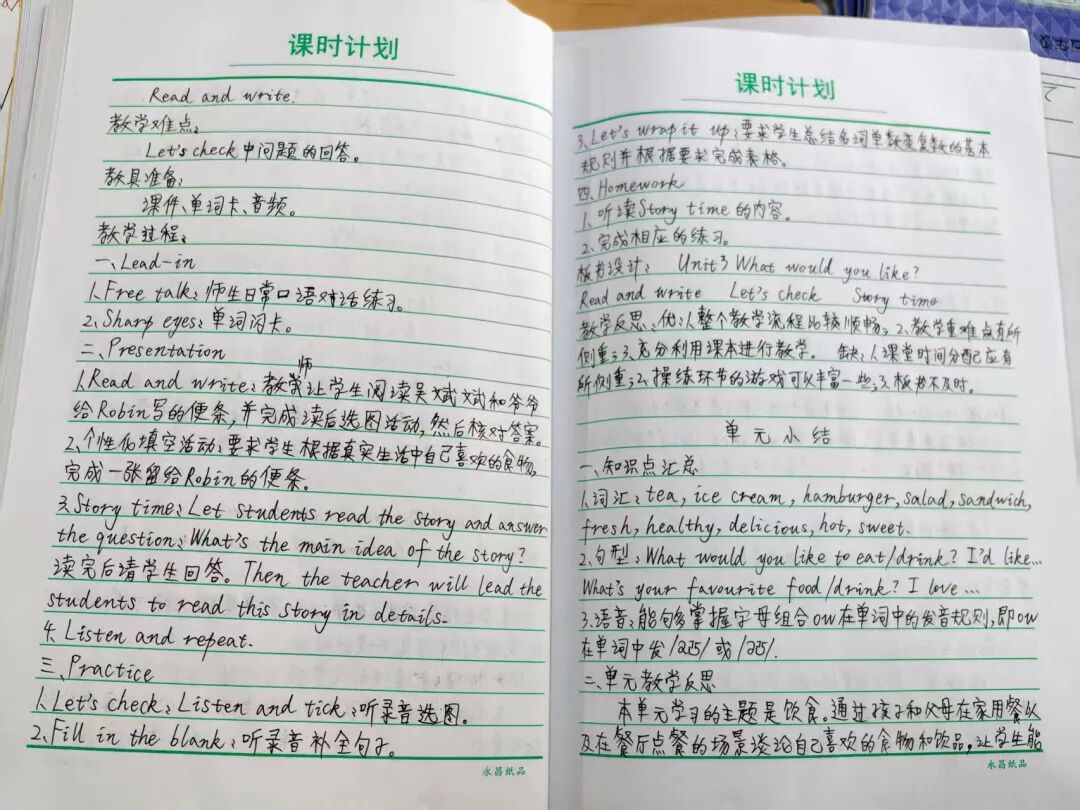 课时计划
Read and write.
教学难点:
Let's check中问题的回答。
教具准备:
课件、单词卡、音频。
教学过程:
一、Lead-in
1.Free talk:师生日常口语对话练习。
2.Sharp eyes:单词闪卡。
二、Presentation
1.Read and write:教师让学生阅读吴斌斌和爷爷
给Robin写的便条,并完成读后选图活动,然后核对答案。
2.个性化填空活动:要求学生根据真实生活中自己喜欢的食物,
完成一张留给Robin的便条。
3.Story time:Let students read the story and answer
the question:What's the main idea of the story?
读完后请学生回答。Then the teacher will lead the
students to read this story in details.
4.Listen and repeat.
三、Practice
1.Let's check:Listen and tick:听录音选图。
2.Fill in the blank:听录音补全句子。
永昌纸品
课时计划
3.Let's wrap it up:要求学生总结名词单数变复数的基本
规则并根据要求完成表格。
四、Homework
1、听读Story time的内容。
2、完成相应的练习。
板书设计: Unit3 What would you like?
Read and write Let's check Story time
教学反思:优:1、整个教学流程比较顺畅;2、教学重难点有所
侧重;3、充分利用课本进行教学。 缺:1、课堂时间分配应有
所侧重;2、操练环节的游戏可以丰富一些;3、板书不及时。
单元小结
一、知识点汇总
1.词汇:tea, ice cream, hamburger, salad, sandwich,
fresh, healthy, delicious, hot, sweet.
2.句型:What would you like to eat/drink? I'd like...
What's your favourite food/drink? I love ...
3.语音:能够掌握字母组合ow在单词中的发音规则,即ow
在单词中发/aʊ/或/əʊ/.
二、单元教学反思
本单元学习的主题是饮食。通过孩子和父母在家用餐以
及在餐厅点餐的场景谈论自己喜欢的食物和饮品,让学生能
永昌纸品